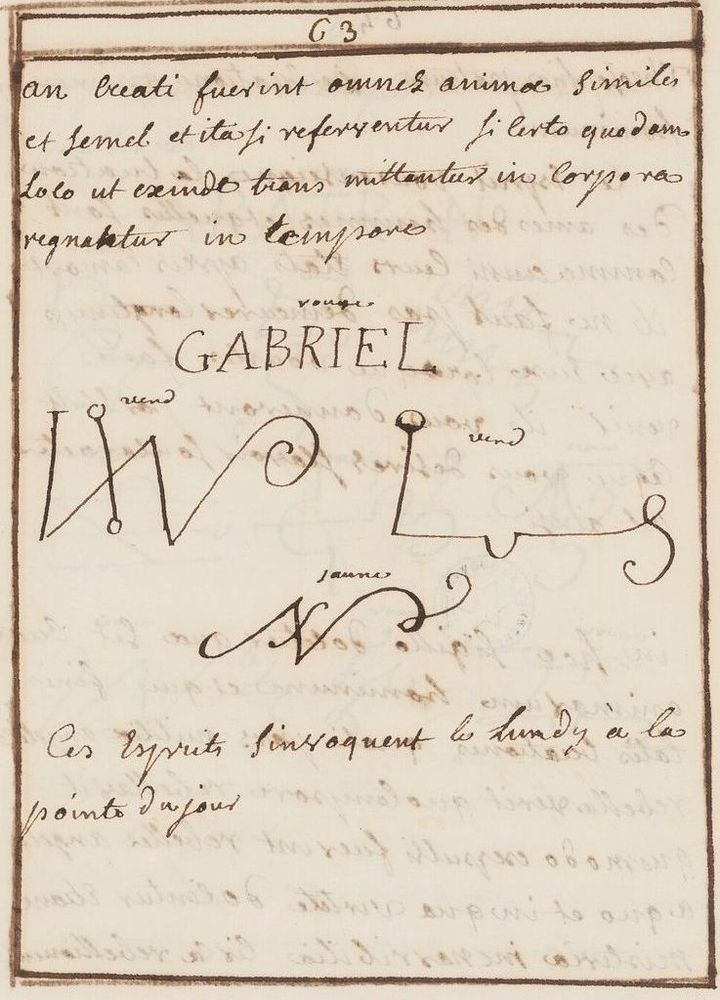 63
an Creati fuerint omnes animæ Similes
et Semel et ita si referventur si Certo quodam
Loco ut exinde trans mittantur in Corpora
regnaktur in tempore
rouge
GABRIEL
verd
verd
jaune
Ces Esprits S'invoquent le Lundy à la
pointe du jour